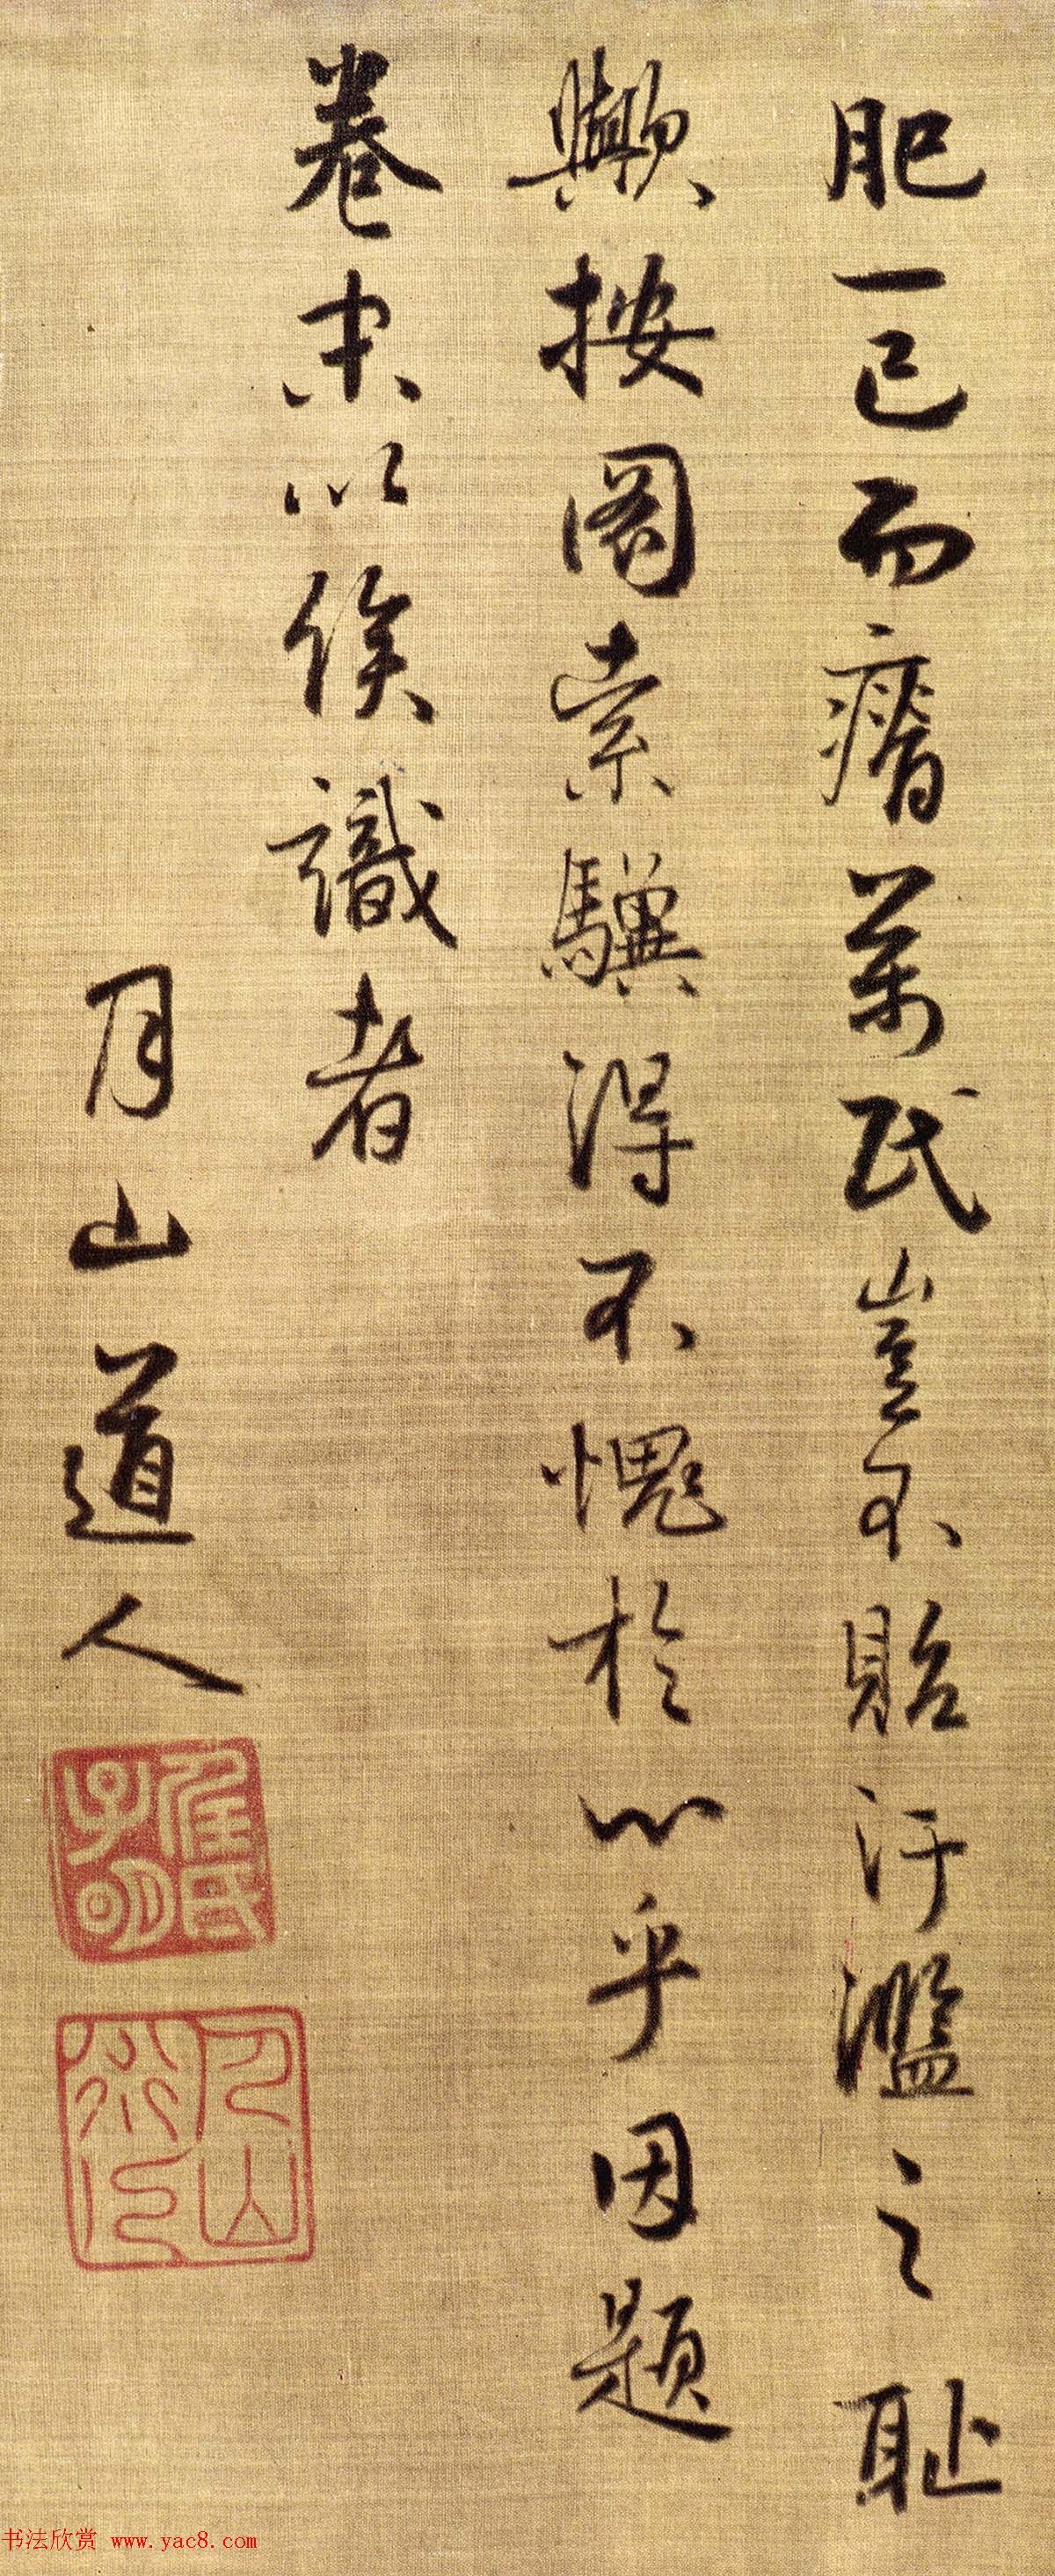 肥一己而瘠萬民豈不貽汙濫之恥
歟按圖索驥得不愧於心乎因題
卷末以俟識者
月山道人
任氏子明
月山
书法欣赏 www.yac8.com